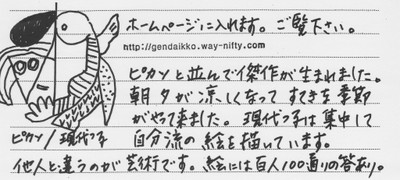 ホームページに入れます。ご覧下さい。
http://gendaikko.way-nifty.com
ピカソと並んで傑作が生まれました。
朝夕が涼しくなって すてきな季節
がやって来ました。現代っ子は集中して
ピカソ/現代っ子 自分流の絵を描いています。
他人と違うのが芸術です。絵には百人100通りの答あり。